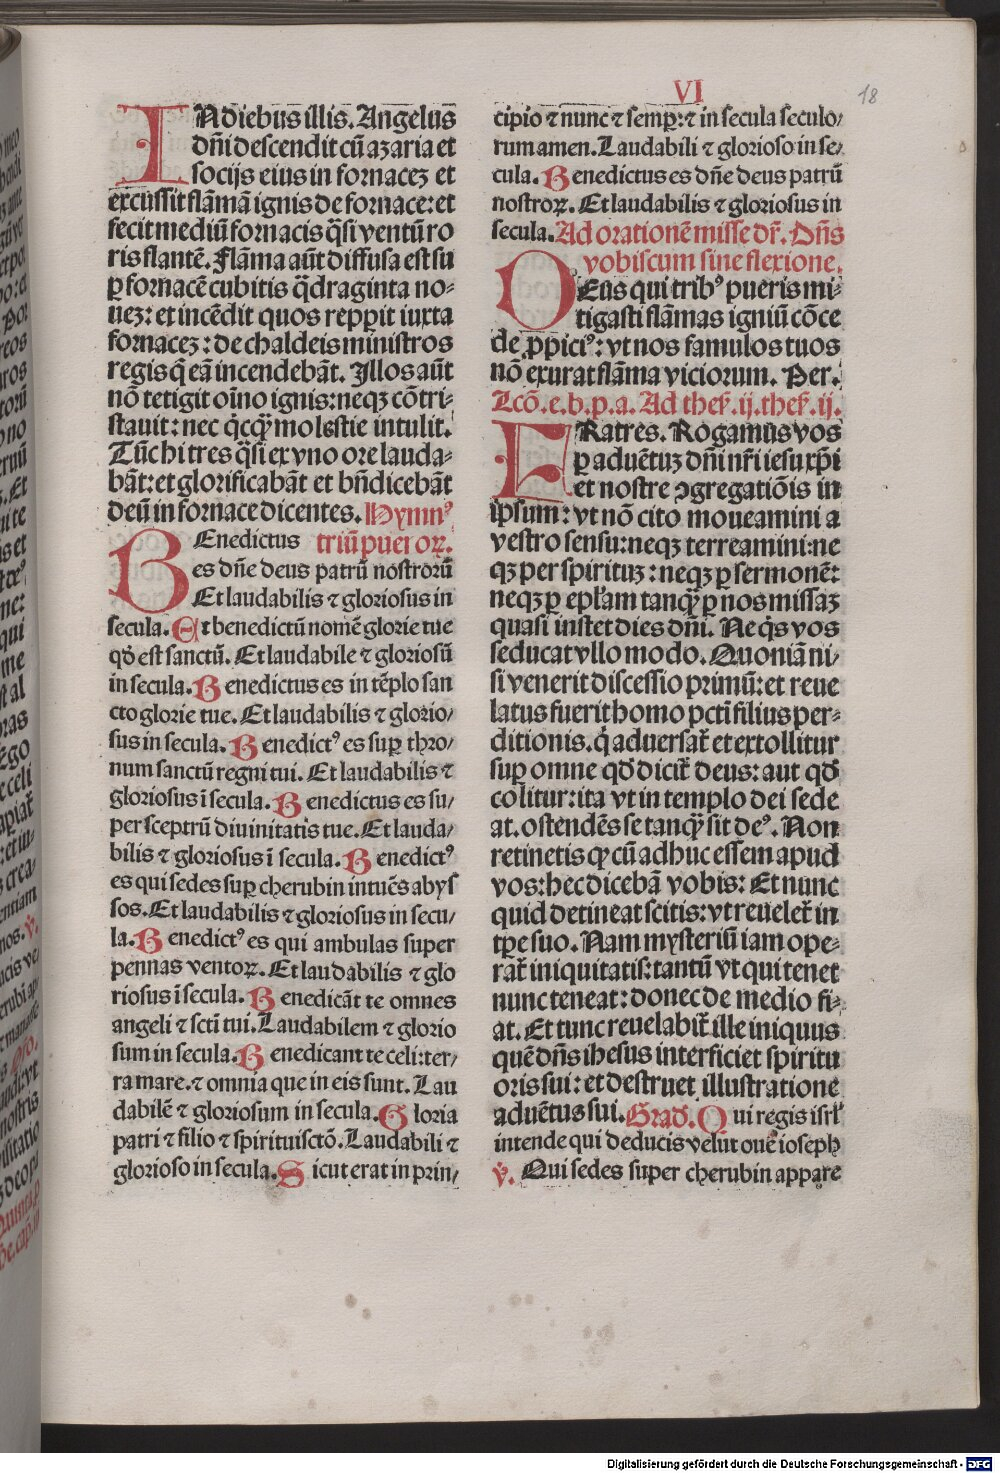 VI
18
INdiebus illis. Angelus
dñi descendit cũ azaria et
socijs eius in fornacez et
excussit flãmã ignis de fornace: et
fecit mediũ fornacis q̃si ventũ ro
ris flantẽ. Flãma aũt diffusa est su
ꝑ fornacẽ cubitis q̃draginta no⸗
uez: et incẽdit quos repꝑit iuxta
fornacez: de chaldeis ministros
regis q̃ eã incendebãt. Illos aũt
nõ tetigit oĩno ignis: neqꝫ cõtri⸗
stauit: nec q̃cꝙ̃ molestie intulit.
Tũc hi tres q̃si ex vno ore lauda⸗
bãt: et glorificabãt et bñdicebãt
deũ in fornace dicentes. Hymnꝰ
BEnedictus triũ pueroꝝ.
es dñe deus patrũ nostrorũ
Et laudabilis ⁊ gloriosus in
secula. Et benedictũ nomẽ glorie tue
qđ est sanctũ. Et laudabile ⁊ gloriosũ
in secula. Benedictus es in tẽplo san
cto glorie tue. Et laudabilis ⁊ glorio/
sus in secula. Benedictꝰ es suꝑ thro/
num sanctũ regni tui. Et laudabilis ⁊
gloriosus ĩ secula. Benedictus es su/
per sceptrũ diuinitatis tue. Et lauda/
bilis ⁊ gloriosus ĩ secula. Benedictꝰ
es qui sedes suꝑ cherubin intuẽs abyſ
sos. Et laudabilis ⁊ gloriosus in secu/
la. Benedictꝰ es qui ambulas super
pennas ventoꝝ. Et laudabilis ⁊ glo
riosus ĩ secula. Benedicãt te omnes
angeli ⁊ scti tui. Laudabilem ⁊ glorio
sum in secula. Benedicant te celi: ter/
ra mare. ⁊ omnia que in eis sunt. Lau
dabilẽ ⁊ gloriosum in secula. Gloria
patri ⁊ filio ⁊ spirituisctõ. Laudabili ⁊
glorioso in secula. Sicut erat in prin/
cipio ⁊ nunc ⁊ semꝑ: ⁊ in secula seculo/
rum amen. Laudabili ⁊ glorioso in se/
cula. Benedictus es dñe deus patrũ
nostroꝝ. Et laudabilis ⁊ gloriosus in
secula. Ad orationẽ misse dr̃. Dñs
vobiscum sine flexione.
DEus qui tribꝰ pueris mi⸗
tigasti flãmas igniũ cõce
de ꝓpiciꝰ: vt nos famulos tuos
nõ exurat flãma viciorum. Per.
Lcõ. e. b. p. a. Ad theſ. ij. theſ. ij.
FRatres. Rogamus vos
ꝑ aduẽtuz dñi nr̃i iesu xp̃i
et nostre ꝯgregatiõis in
ipsum: vt nõ cito moueamini a
vestro sensu: neqꝫ terreamini: ne
qꝫ per spirituz: neqꝫ ꝑ sermonẽ:
neqꝫ ꝑ epl̃am tanqꝙ̃ ꝑ nos missaz
quasi instet dies dñi. Ne q̃s vos
seducat vllo modo. Quoniã ni⸗
si venerit discessio primũ: et reue
latus fuerit homo pctĩ filius per⸗
ditionis. q̃ aduersat̃ et extollitur
suꝑ omne qđ dicit̃ deus: aut qđ
colitur: ita vt in templo dei sede
at. ostendẽs se tanqꝙ̃ sit deꝰ. Non
retinetis ꝙ cũ adhuc essem apud
vos: hec dicebã vobis: Et nunc
quid detineat scitis: vt reuelet̃ in
tꝑe suo. Nam mysteriũ iam ope⸗
rat̃ iniquitatis: tantũ vt qui tenet
nunc teneat: donec de medio fi⸗
at. Et tunc reuelabit̃ ille iniquus
quẽ dñs ihesus interficiet spiritu
oris sui: et destruet illustratione
aduẽtus sui. Grad. Qui regis isrl̃
intende qui deducis velut ouẽ ioseph
v̕. Qui sedes super cherubin appare
Digitalisierung gefördert durch die Deutsche Forschungsgemeinschaft - DFG